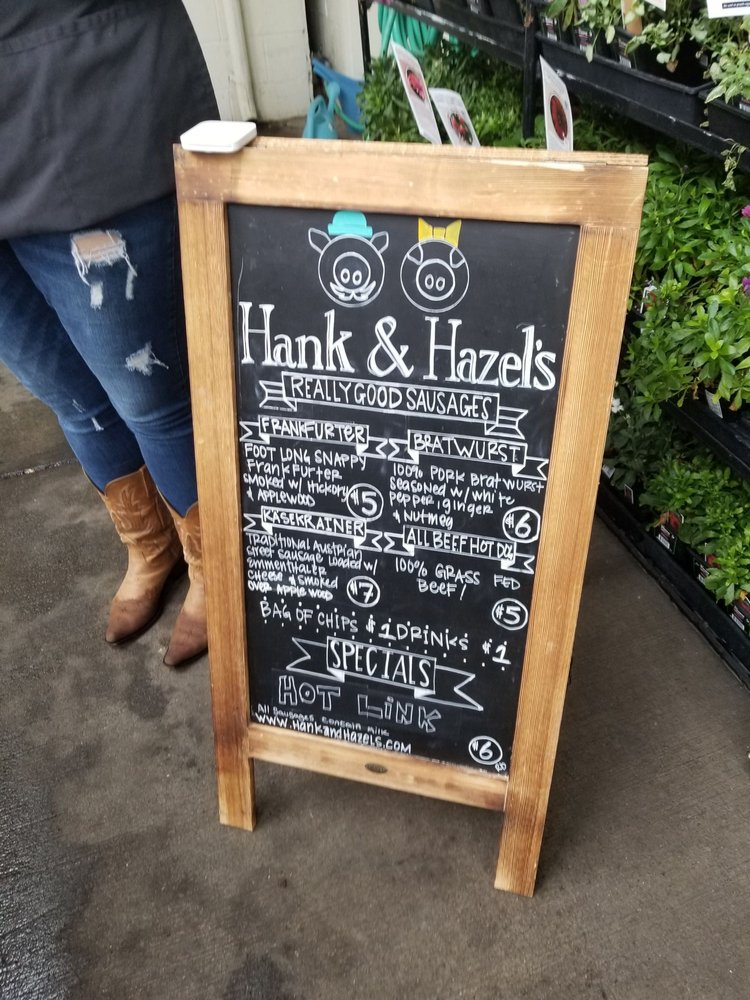 Hank & Hazel's
REALLY GOOD SAUSAGES
FRANKFURTER
FOOT LONG SNAPPY
FRANKFURTER
SMOKED W/ HICKORY
& APPLEWOOD
$5
BRATWURST
100% PORK BRATWURST
SEASONED W/ WHITE
PEPPER, GINGER
& NUTMEG
$6
KASEKRAINER
TRADITIONAL AUSTRIAN
STREET SAUSAGE LOADED W/
EMMENTHALER
CHEESE & SMOKED
OVER APPLE WOOD
$7
ALL BEEF HOT DOG
100% GRASS FED
BEEF!
$5
BAG OF CHIPS $1 DRINKS $1
SPECIALS
HOT LINK
$6
All Sausages contain milk
WWW.HANKANDHAZELS.COM